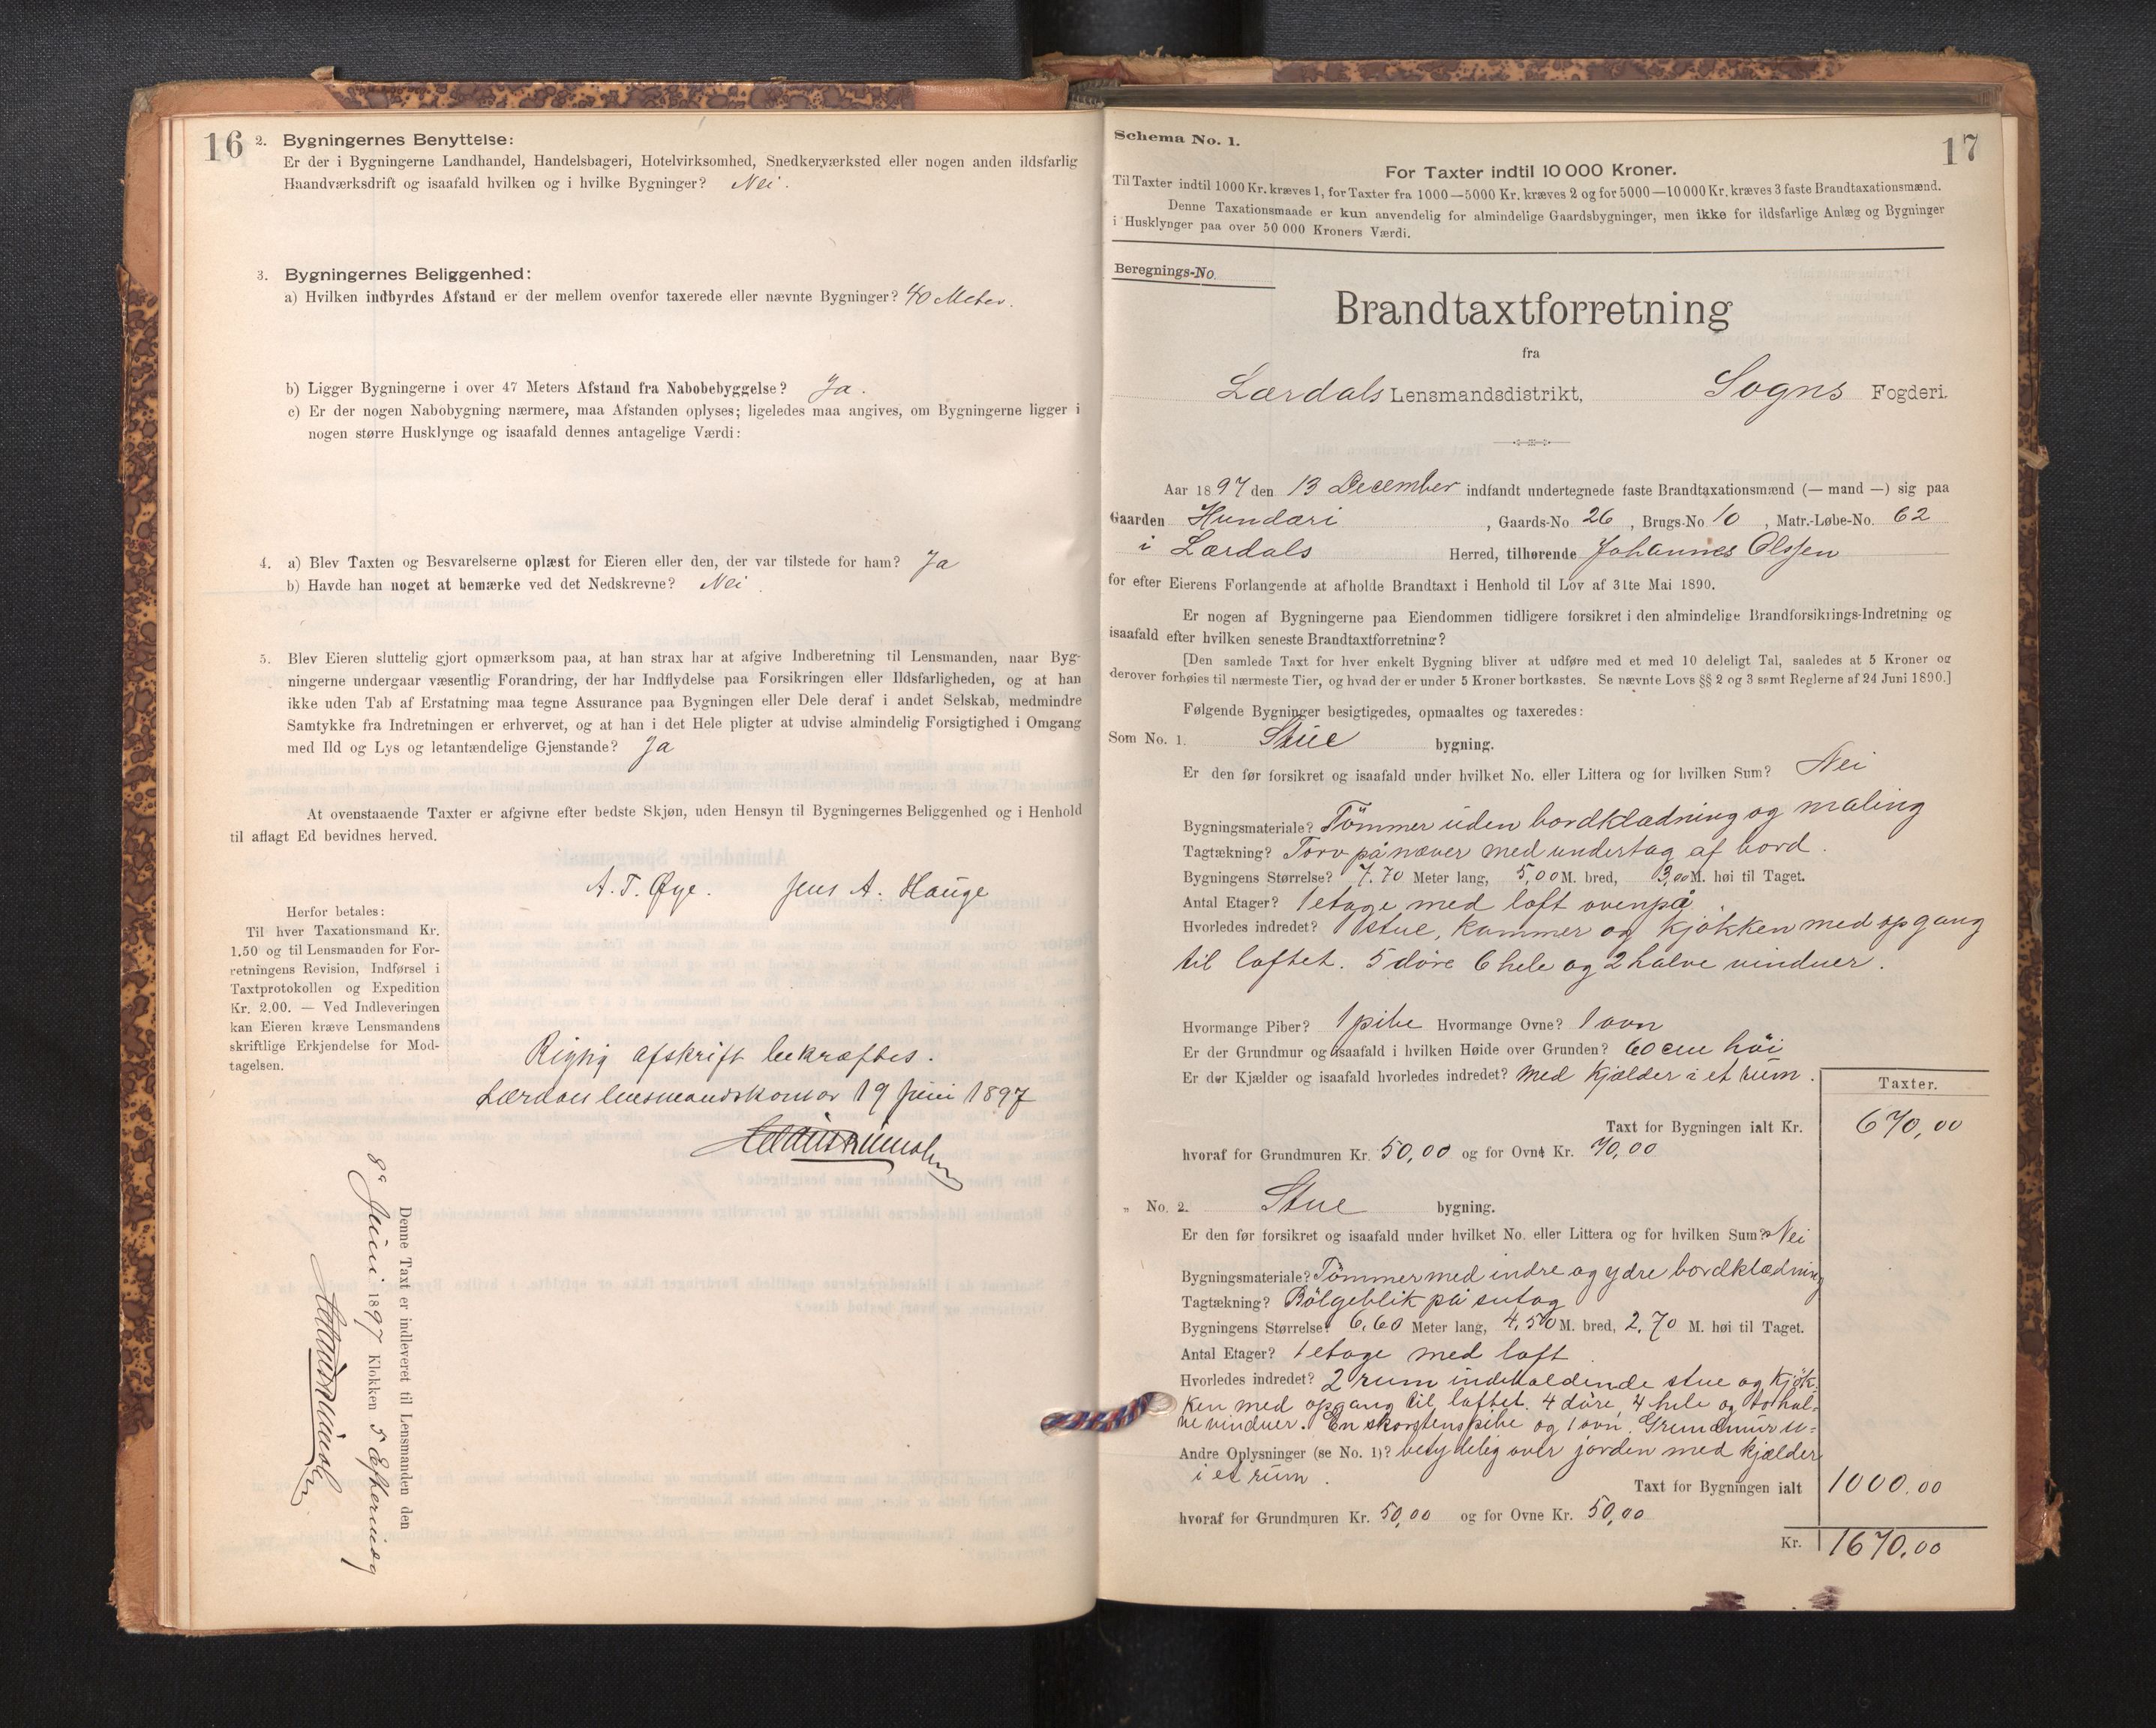 16
2. Bygningernes Benyttelse:
Er der i Bygningerne Landhandel, Handelsbageri, Hotelvirksomhed, Snedkerværksted eller nogen anden ildsfarlig
Haandværksdrift og isaafald hvilken og i hvilke Bygninger? Nei.
3. Bygningernes Beliggenhed:
a) Hvilken indbyrdes Afstand er der mellem ovenfor taxerede eller nævnte Bygninger? 40 Meter.
b) Ligger Bygningerne i over 47 Meters Afstand fra Nabobebyggelse? Ja.
c) Er der nogen Nabobygning nærmere, maa Afstanden oplyses; ligeledes maa angives, om Bygningerne ligger i
nogen større Husklynge og isaafald dennes antagelige Værdi:
4. a) Blev Taxten og Besvarelserne oplæst for Eieren eller den, der var tilstede for ham? Ja
b) Havde han noget at bemærke ved det Nedskrevne? Nei.
5. Blev Eieren sluttelig gjort opmærksom paa, at han strax har at afgive Indberetning til Lensmanden, naar Byg-
ningerne undergaar væsentlig Forandring, der har Indflydelse paa Forsikringen eller Ildsfarligheden, og at han
ikke uden Tab af Erstatning maa tegne Assurance paa Bygningen eller Dele deraf i andet Selskab, medmindre
Samtykke fra Indretningen er erhvervet, og at han i det Hele pligter at udvise almindelig Forsigtighed i Omgang
med Ild og Lys og letantændelige Gjenstande? Ja
At ovenstaaende Taxter er afgivne efter bedste Skjøn, uden Hensyn til Bygningernes Beliggenhed og i Henhold
til aflagt Ed bevidnes herved.
A. T. Øye. Jens A. Hauge
Herfor betales:
Til hver Taxationsmand Kr.
1.50 og til Lensmanden for For-
retningens Revision, Indførsel i
Taxtprotokollen og Expedition
Kr. 2.00. — Ved Indleveringen
kan Eieren kræve Lensmandens
skriftlige Erkjendelse for Mod-
tagelsen.
Rigtig afskrift bekræftes.
Lærdals lensmandskontor 19 Juni 1897
Denne Taxt er indleveret til Lensmanden den
8de Juni 1897 Klokken 5 Eftermidag
17
Schema No. 1.
For Taxter indtil 10 000 Kroner.
Til Taxter indtil 1000 Kr. kræves 1, for Taxter fra 1000—5000 Kr. kræves 2 og for 5000—10 000 Kr. kræves 3 faste Brandtaxationsmænd.
Denne Taxationsmaade er kun anvendelig for almindelige Gaardsbygninger, men ikke for ildsfarlige Anlæg og Bygninger
i Husklynger paa over 50 000 Kroners Værdi.
Beregnings-No.
Brandtaxtforretning
fra
Lærdals Lensmandsdistrikt, Sogns Fogderi.
Aar 1897 den 13 December indfandt undertegnede faste Brandtaxationsmænd (— mand —) sig paa
Gaarden Hunderi, Gaards-No 26, Brugs-No 10, Matr.-Løbe-No. 62
i Lærdals Herred, tilhørende Johannes Olssen
for efter Eierens Forlangende at afholde Brandtaxt i Henhold til Lov af 31te Mai 1890.
Er nogen af Bygningerne paa Eiendommen tidligere forsikret i den almindelige Brandforsikrings-Indretning og
isaafald efter hvilken seneste Brandtaxtforretning?
[Den samlede Taxt for hver enkelt Bygning bliver at udføre med et med 10 deleligt Tal, saaledes at 5 Kroner og
derover forhøies til nærmeste Tier, og hvad der er under 5 Kroner bortkastes. Se nævnte Lovs §§ 2 og 3 samt Reglerne af 24 Juni 1890.]
Følgende Bygninger besigtigedes, opmaaltes og taxeredes:
Som No. 1. Stue bygning.
Er den før forsikret og isaafald under hvilket No. eller Littera og for hvilken Sum? Nei
Bygningsmateriale? Tömmer uden bordklædning og maling
Tagtækning? Torv på næver med undertag af bord.
Bygningens Størrelse? 7.70 Meter lang, 5,00 M. bred, 3,00 M. høi til Taget.
Antal Etager? 1 etage med loft ovenpå
Hvorledes indredet? 1 stue, kammer og kjökken med opgang
til loftet. 5 döre 6 hele og 2 halve vinduer.
Hvormange Piber? 1 pibe Hvormange Ovne? 1 ovn
Er der Grundmur og isaafald i hvilken Høide over Grunden? 60 cm höi
Er der Kjælder og isaafald hvorledes indredet? med kjælder i et rum.
Taxter.
Taxt for Bygningen ialt Kr. 670,00
hvoraf for Grundmuren Kr. 50,00 og for Ovne Kr. 70,00
„ No. 2. Stue bygning.
Er den før forsikret og isaafald under hvilket No. eller Littera og for hvilken Sum? Nei
Bygningsmateriale? Tömmer med indre og ydre bordklædning
Tagtækning? Bölgeblik på sutag
Bygningens Størrelse? 6,60 Meter lang, 4,50 M. bred, 2,70 M. høi til Taget.
Antal Etager? 1 etage med loft
Hvorledes indredet? 2 rum indeholdende stue og kjök-
ken med opgang til loftet. 4 döre, 4 hele og to hal-
ve vinduer. En skorstenspibe og 1 ovn. Grundmur u-
Andre Oplysninger (se No. 1)? betydelig over jorden med kjælder
i et rum.
Taxt for Bygningen ialt 1000,00
hvoraf for Grundmuren Kr. 50,00 og for Ovne Kr. 50,00
Kr. 1670,00